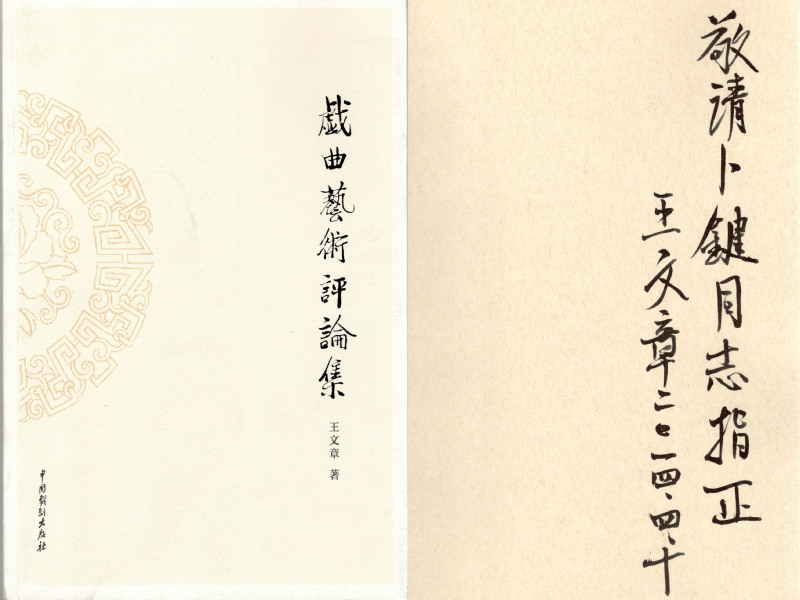 戯曲藝術評論集
王文章 著
中国戲剧出版社
敬请卜鍵同志指正
王文章二〇一四、四、十